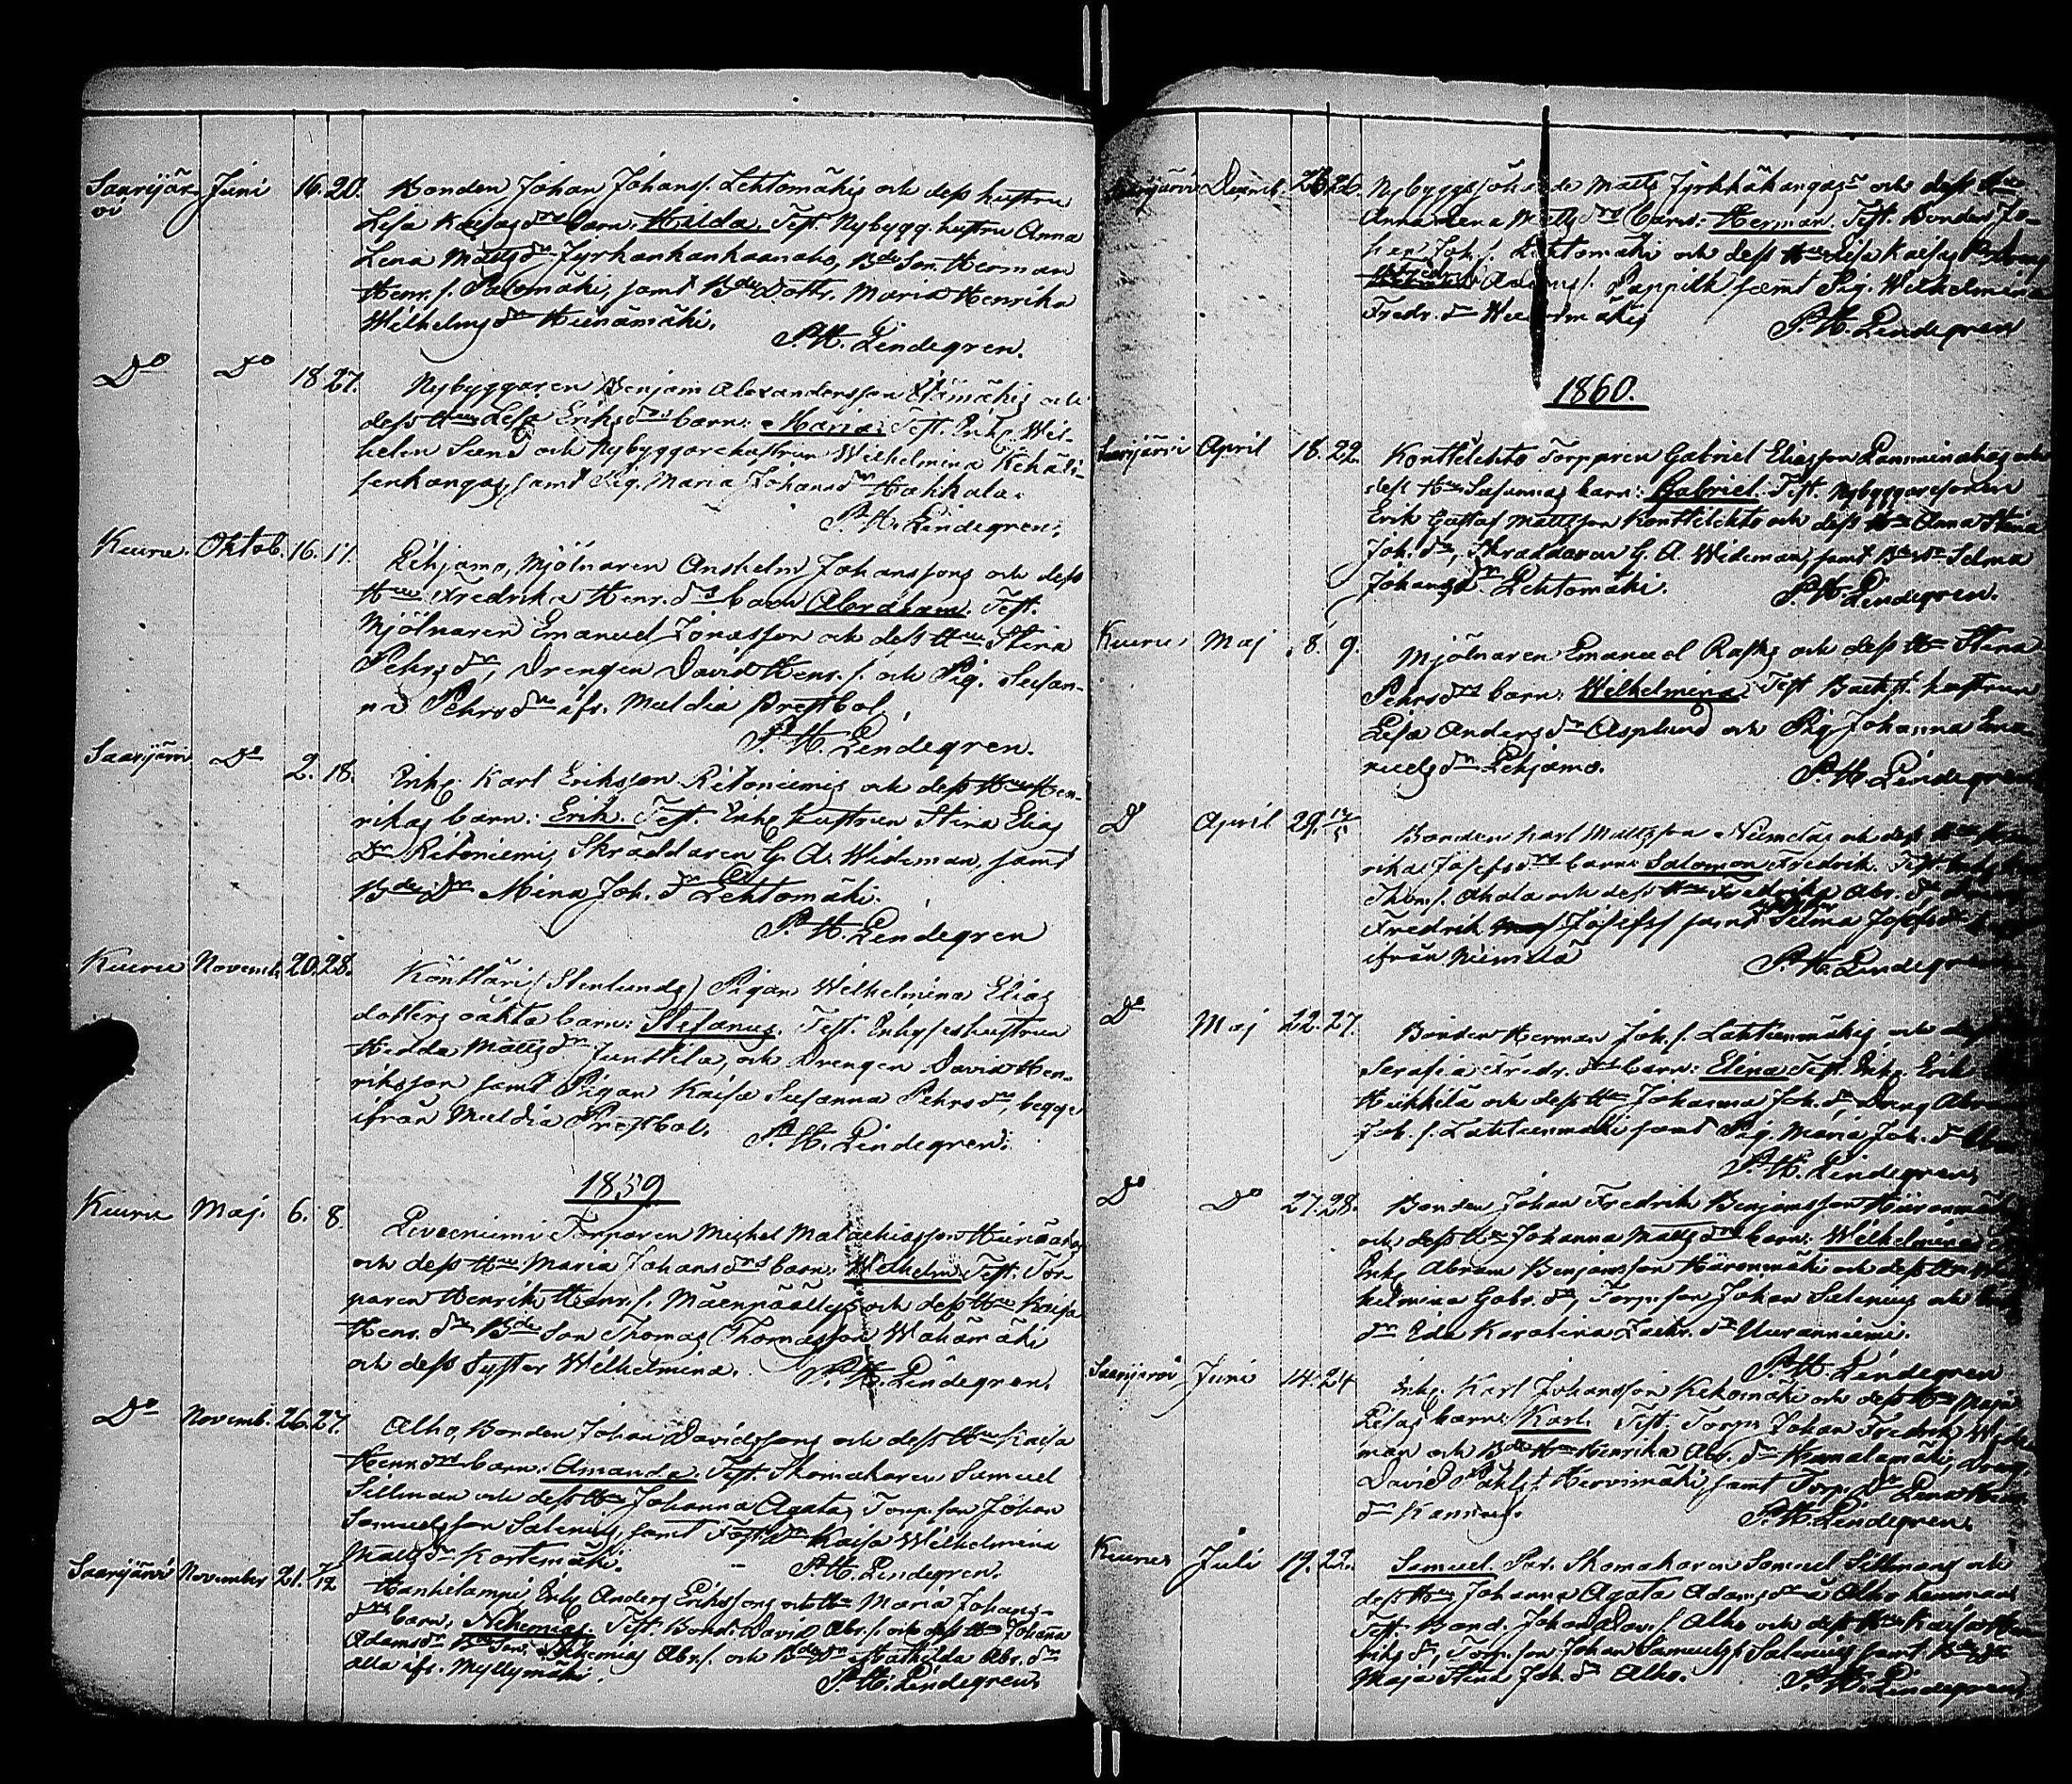 Saarijär- Juni 16. 20. Bonden Johan Johans s. Lehtomäkis och dess hustru
vi Lisa Kaisas drs barn. Hilda. Test. Nybygg. hustru Anna
Lena Matts dr Jyrkänkankaanaho, Bde Son. Herman
Henr. s. Palomäki, samt Bde Dottr. Maria Henrika
Wilhelms dr Hienämäki.
P. H. Lindegren.
Do Do 18. 27. Nybyggaren Benjam Alexandersson och
dess Hus Lisa Eriks drs barn: Maria: Test. Enkl. Wil-
helm Sund och Nybyggarehustrun Wilhelmina
kangas, samt Pig. Maria Johans dr Hakkala.
P. H. Lindegren.
Keuru. Oktob. 16. 17. Pihjamo, Mjölnaren Anshelm Johanssons och dess
Hus Fredrika Henr. drs barn Abraham. Test.
Mjölnaren Emanuel Jonasson och dess Hu Stina
Pehrs dr, Drengen David Henr. s. och Pig. Susan-
na Pehrs dr ifr. Muldia Prestbol.
P. H. Lindegren.
Saarijärvi Do 2. 18. Enkl Karl Eriksson Ritoniemis och dess Hus Hen-
rikas barn: Erik. Test. Enkl hustrun Stina Elias
Dr Ritoniemi, Skräddaren G. A. Wideman, samt
Bde Dr Mina Joh. dr Lehtomäki.
P. H. Lindegren
Keuru Novemb. 20. 28. Könttäri (Stenlunds) Pigan Wilhelmina Elias
dotters oäkta barn: Stefanus. Test. Inhyseshustrun
Hedda Matts dr Junttila, och Drengen David Hen-
riksson samt Pigan Kaisa Susanna Pehrs dr, begge
ifrån Muldia Prestbol.
P. H. Lindegren.
1859
Keuru Maj. 6. 8. Liveeniemi Torparen Michel Malachiasson Heinäahos
och dess Hus Maria Johans drs barn. Wilhelm. Test. Tor-
paren Henrik Henr. s. Mäenpää och dess Hu Kaisa
Henr. dr Bde Son Thomas Thomasson Wahämäki
och dess syster Wilhelmina.
P. H. Lindegren.
Do Novemb. 26. 27. Alho, Bonden Johan Davidssons och dess Hus Kaisa
Henr drs barn. Amanda. Test. Skomakaren Samuel
Sillman och dess Hu Johanna Agata, Torp. son Johan
Samuelsson Salenius, samt Torp. dr Kaisa Wilhelmina
Matts dr Kortemäki.
P. H. Lindegren.
Saarijärvi November 21. 1/12 Hankilampi, Enkl Anders Erikssons och Hus Maria Johans-
drs barn, Nehemias. Test. Bond. David Abr. s. och dess Hu Johanna
Adams dr Bde Son. Nehemias Abr. s. och Bde dr Mathilda Abr. dr
alla ifr. Myllymäki.
P. H. Lindegren.
Saarijärvi Decemb. 26. Matts och dess Hus
Anna Lena Matts drs barn: Herman. Test. Bonden Jo-
han Joh. s. Lehtomäki och dess Hu Lisa Kaisa,
Anders s. Pappila samt Pig. Wilhelmina
Fredr. dr
P. H. Lindegren
1860.
Saarijärvi April 18. 22. Konttilehto Torparen Gabriel Eliasson och
dess Hus Susannas barn: Gabriel. Test. Nybyggaresonen
Erik Gustaf Mattsson Konttilehto och dess Hu Anna Stina
Joh. dr, Skräddaren G. A. Wideman, samt Bde Dr Selma
Johans dr Lehtomäki.
P. H. Lindegren.
Keuru Maj 8. 9. Mjölnaren Emanuel Rasks och dess Hus Stina
Pehrs drs barn. Wilhelmina. Test hustrun
Lisa Anders dr Asplund och Pig. Johanna Ema-
nuels dr Pihjamo.
P. H. Lindegren
Do April 29. 12/5 Bonden Karl Mattsson Niemeläs och dess Hus Hen-
rikas Josefs drs barn: Salomon Fredrik. Test
Thom. s. Ahola och dess Hu Fredrika Abr. dr
Fredrik Josefss samt Selma Josefs dr
ifrån Niemelä
P. H. Lindegren
Do Maj 22. 27. Bonden Herman Joh. s. Lahtienmäkis och dess
Serafia Fredr. drs barn: Elina Test. Enkl. Erik
Heikkilä och dess Hu Johanna Joh. dr, Dreng
Joh. s. Lahtienmäki samt Pig. Maria Joh. dr
P. H. Lindegren
Do Do 27. 28. Bonden Johan Fredrik Benjamsson
och dess Hus Johanna Matts drs barn: Wilhelmina
Enkl Abram Benjamsson och dess Hu Wil-
helmina Gabr. dr, Torp. son Johan Salenius och
dr Eda Karolina Zachr. dr
P. H. Lindegren
Saarijärvi Juni 14. 24 Enkl. Karl Johansson Kekomäki och dess Hus Maja
Lisas barn: Karl. Test. Torp. Johan Fredrik
man och Bde Hu Henrika Abr. dr Hamalamäki, Dreng.
David Pahls s. Hirvimäki samt Torp. dr Lena
dr
P. H. Lindegren.
Keuru Juli 19. 22. Samuel. Par. Skomakaren Samuel Sillmans och
dess Hus Johanna Agata Adams dr å Alho hemman
Test. Bond. Johan Dav. s. Alho och dess Hu Kaisa Hen-
riks dr, Torp. son Johan Samuelss Salenius samt Bde Dr
Maja Stina Joh. dr Alho.
P. H. Lindegren